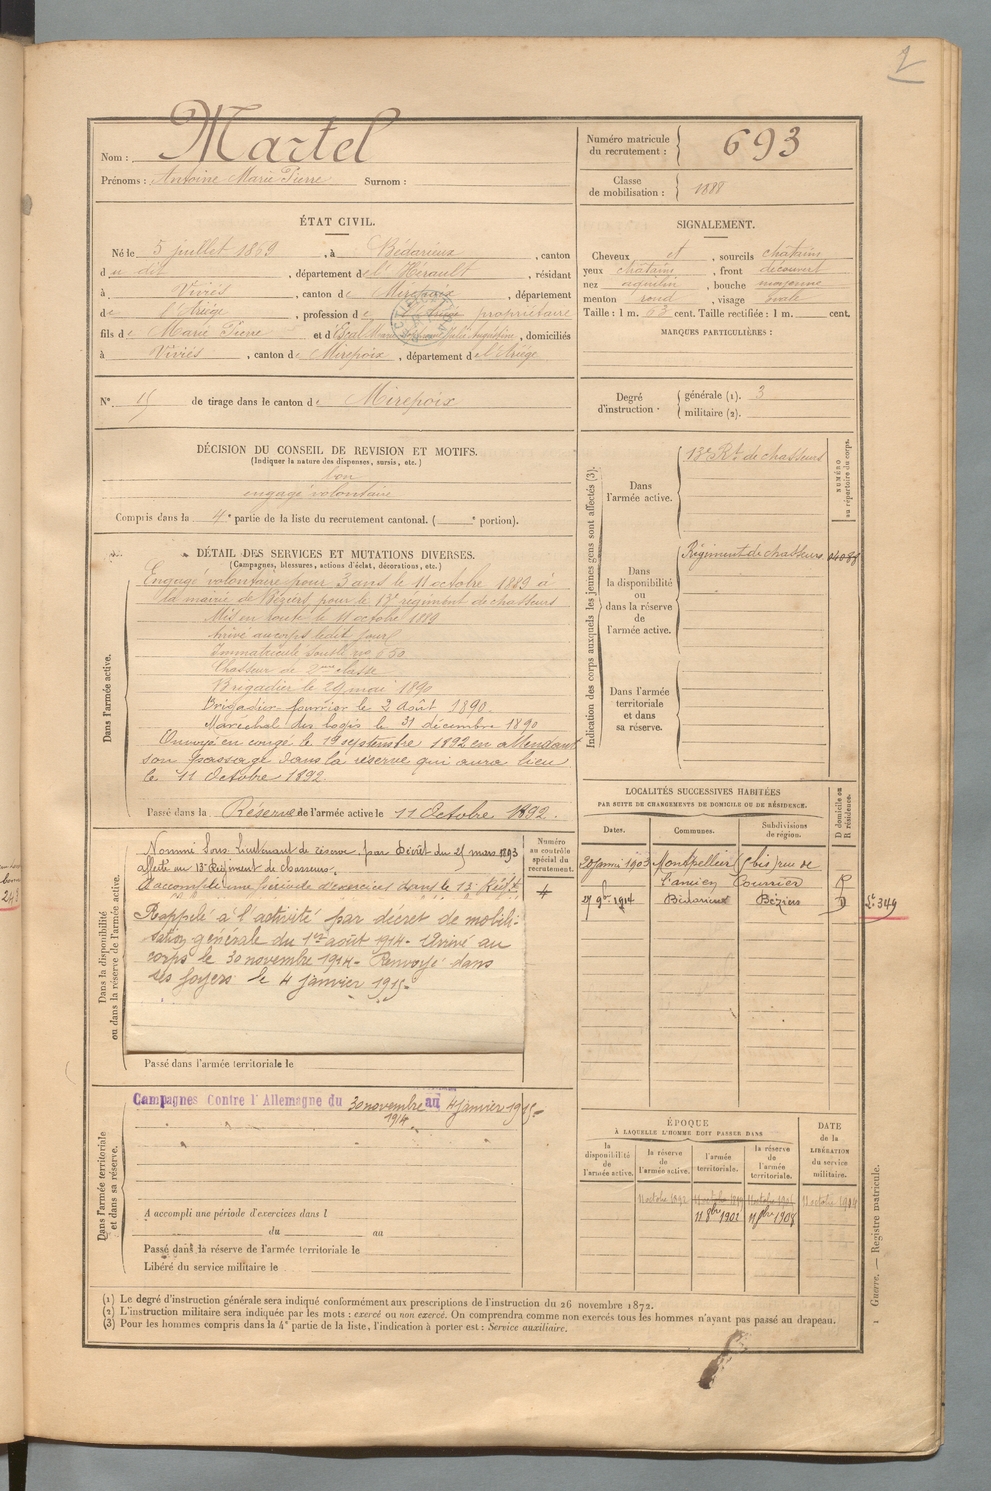 1
Nom : Martel
Prénoms : Antoine Marie Pierre Surnom :
Numéro matricule du recrutement : 693
Classe de mobilisation : 1888
ÉTAT CIVIL.
Né le 5 juillet 1869, à Bédarieux, canton
du dit, département de l'Hérault, résidant
à Viviés, canton de Mirepoix, département
de l'Ariège, profession de propriétaire
fils de Marie Pierre et d' Marie Augustine, domiciliés
à Viviés, canton de Mirepoix, département de l'Ariège
N° 15 de tirage dans le canton de Mirepoix
SIGNALEMENT.
Cheveux et, sourcils chatains
yeux chatains, front découvert
nez aquilin, bouche moyenne
menton rond, visage ovale
Taille : 1 m. 63 cent. Taille rectifiée : 1 m. cent.
MARQUES PARTICULIÈRES :
Degré d'instruction. générale (1). 3
militaire (2).
DÉCISION DU CONSEIL DE REVISION ET MOTIFS.
(Indiquer la nature des dispenses, sursis, etc.)
bon
engagé volontaire
Compris dans la 4e partie de la liste du recrutement cantonal. (e portion).
DÉTAIL DES SERVICES ET MUTATIONS DIVERSES.
(Campagnes, blessures, actions d'éclat, décorations, etc.)
Dans l'armée active.
Engagé volontaire pour 3 ans le 11 octobre 1889 à
la mairie de Béziers pour le 13e régiment de chasseurs
Mis en route le 11 octobre 1889
Arrivé au corps le dit jour
Immatriculé sous le no 650
Chasseur de 2me classe
Brigadier le 29 mai 1890
Brigadier-fourrier le 2 Août 1890.
Maréchal des logis le 31 décembre 1890
Envoyé en congé le 19 septembre 1892 en attendant
son passage dans la réserve qui aura lieu
le 11 Octobre 1892.
Passé dans la Réserve de l'armée active le 11 Octobre 1892.
Dans la disponibilité ou dans la réserve de l'armée active.
Nommé Sous-Lieutenant de réserve par Décret du 25 mars 1893
affecté au 13e Régiment de Chasseurs.
A accompli une période d'exercices dans le 13e Régt
Rappelé à l'activité par décret de mobili-
sation générale du 1er août 1914. Arrivé au
corps le 30 novembre 1914. Renvoyé dans
ses foyers le 4 janvier 1915.
Numéro au contrôle spécial du recrutement.
Passé dans l'armée territoriale le
Dans l'armée territoriale et dans sa réserve.
Campagnes Contre l'Allemagne du 30 novembre 1914 au 4 janvier 1915.
A accompli une période d'exercices dans l
du au
Passé dans la réserve de l'armée territoriale le
Libéré du service militaire le
Indication des corps auxquels les jeunes gens sont affectés (3).
Dans l'armée active. 13e Rt de chasseurs
NUMÉRO au répertoire du corps.
Dans la disponibilité ou dans la réserve de l'armée active. Régiment de chasseurs
Dans l'armée territoriale et dans sa réserve.
LOCALITÉS SUCCESSIVES HABITÉES
PAR SUITE DE CHANGEMENTS DE DOMICILE OU DE RÉSIDENCE.
Dates. Communes. Subdivisions de région. D domicile ou R résidence.
20 janvr 1903 Montpellier (5 bis) rue de
l'ancien Courrier R
27 9bre 1914 Bédarieux Béziers D
349
ÉPOQUE
À LAQUELLE L'HOMME DOIT PASSER DANS
la disponibilité de l'armée active. la réserve de l'armée active. l'armée territoriale. la réserve de l'armée territoriale.
DATE de la LIBÉRATION du service militaire.
11 octobre 1892 11 octobre 1899 11 octobre 11 octobre 1914
11 8bre 1902 11 8bre 1908
Guerre. — Registre matricule. 1
(1) Le degré d'instruction générale sera indiqué conformément aux prescriptions de l'instruction du 26 novembre 1872.
(2) L'instruction militaire sera indiquée par les mots : exercé ou non exercé. On comprendra comme non exercés tous les hommes n'ayant pas passé au drapeau.
(3) Pour les hommes compris dans la 4e partie de la liste, l'indication à porter est : Service auxiliaire.